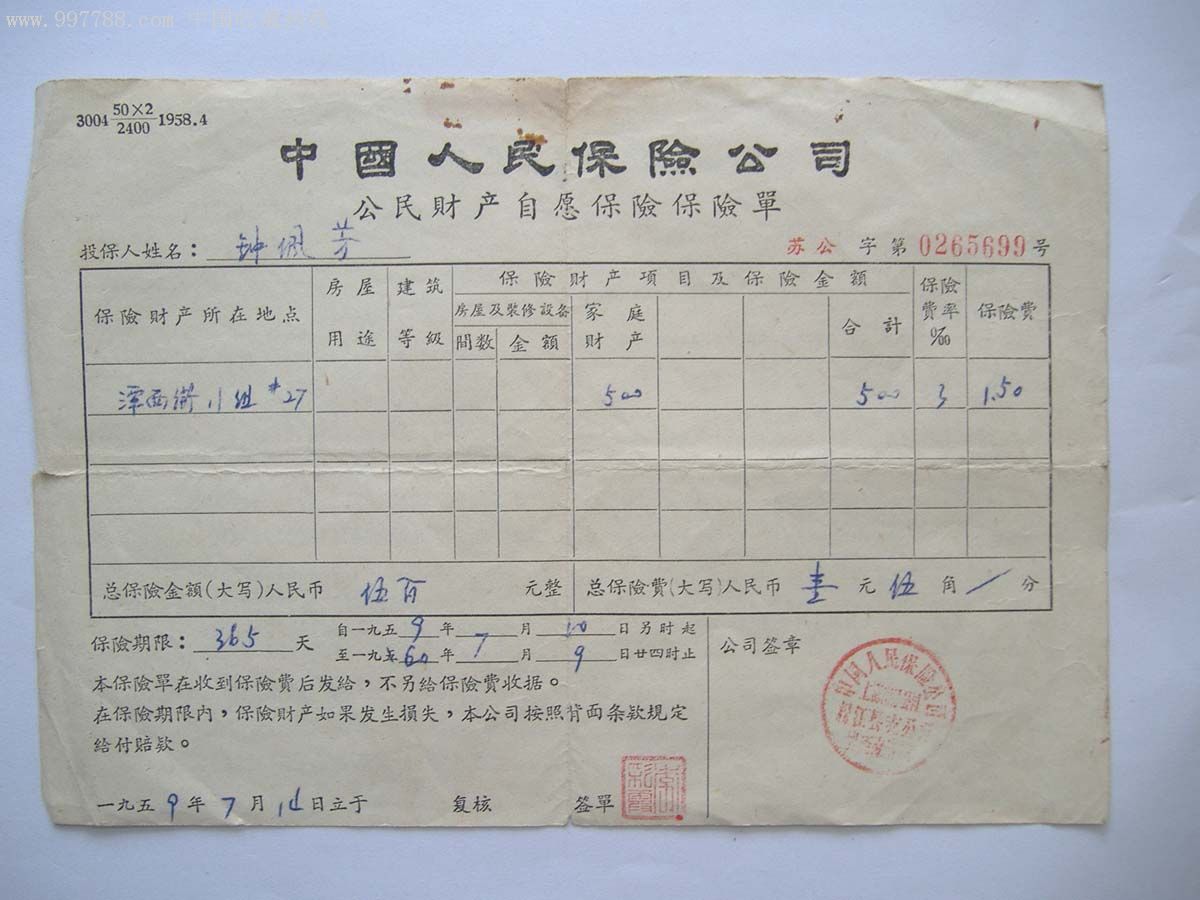 www.997788.com 中国收藏热线
3004 50×2/2400 1958.4
中國人民保險公司
公民財产自愿保險保險單
投保人姓名：钟佩芳
苏公 字第 0265699 号
保險財产所在地点 房屋用途 建筑等級 保險財产項目及保險金額 保險費率‰ 保險費
房屋及裝修設备 家庭財产 合計
間数 金額
潭西街小组 #27 500 500 3 1.50
总保險金額(大写)人民币 伍百 元整 总保險費(大写)人民币 壹 元 伍 角 / 分
保險期限：365 天 自一九五9年7月10日另时起
至一九60年7月9日廿四时止
公司签章
本保險單在收到保險費后发給，不另給保險費收据。
在保險期限内，保險財产如果发生損失，本公司按照背面条款規定
給付賠款。
一九五9年7月 日立于 复核 签單